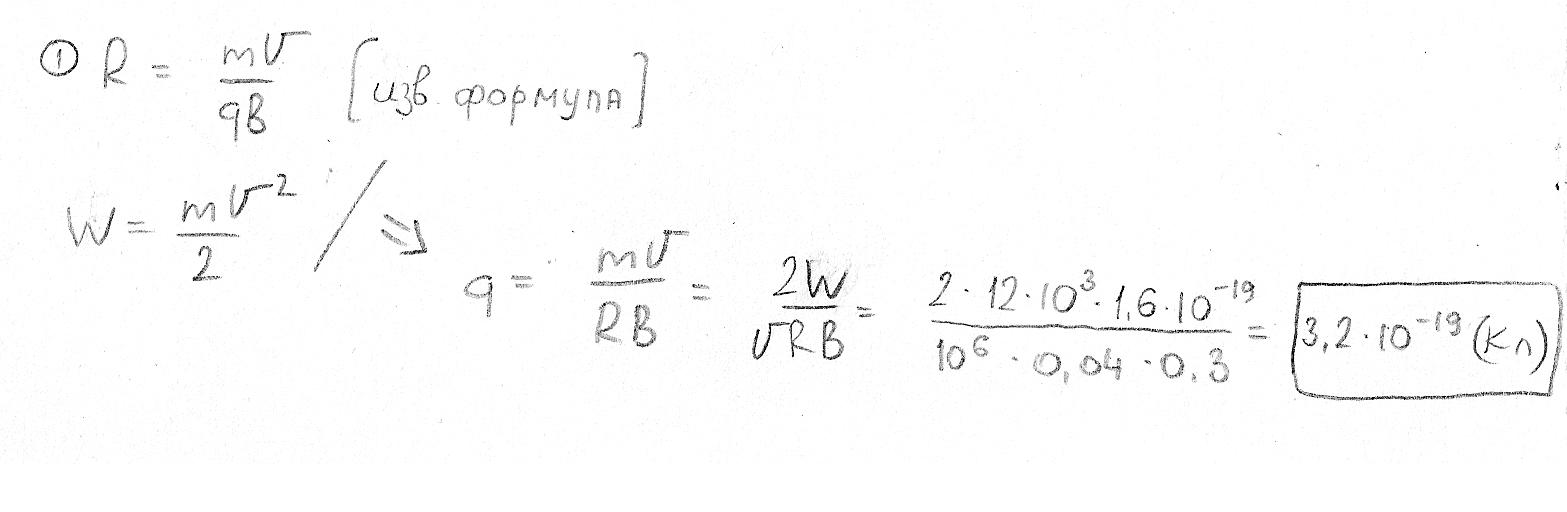 ① R = mv/qB [изв. формула]
W = mv²/2 / ⇒
q = mv/RB = 2W/vRB = 2·12·10³·1,6·10⁻¹⁹/10⁶·0,04·0,3 = 3,2·10⁻¹⁹ (Кл)